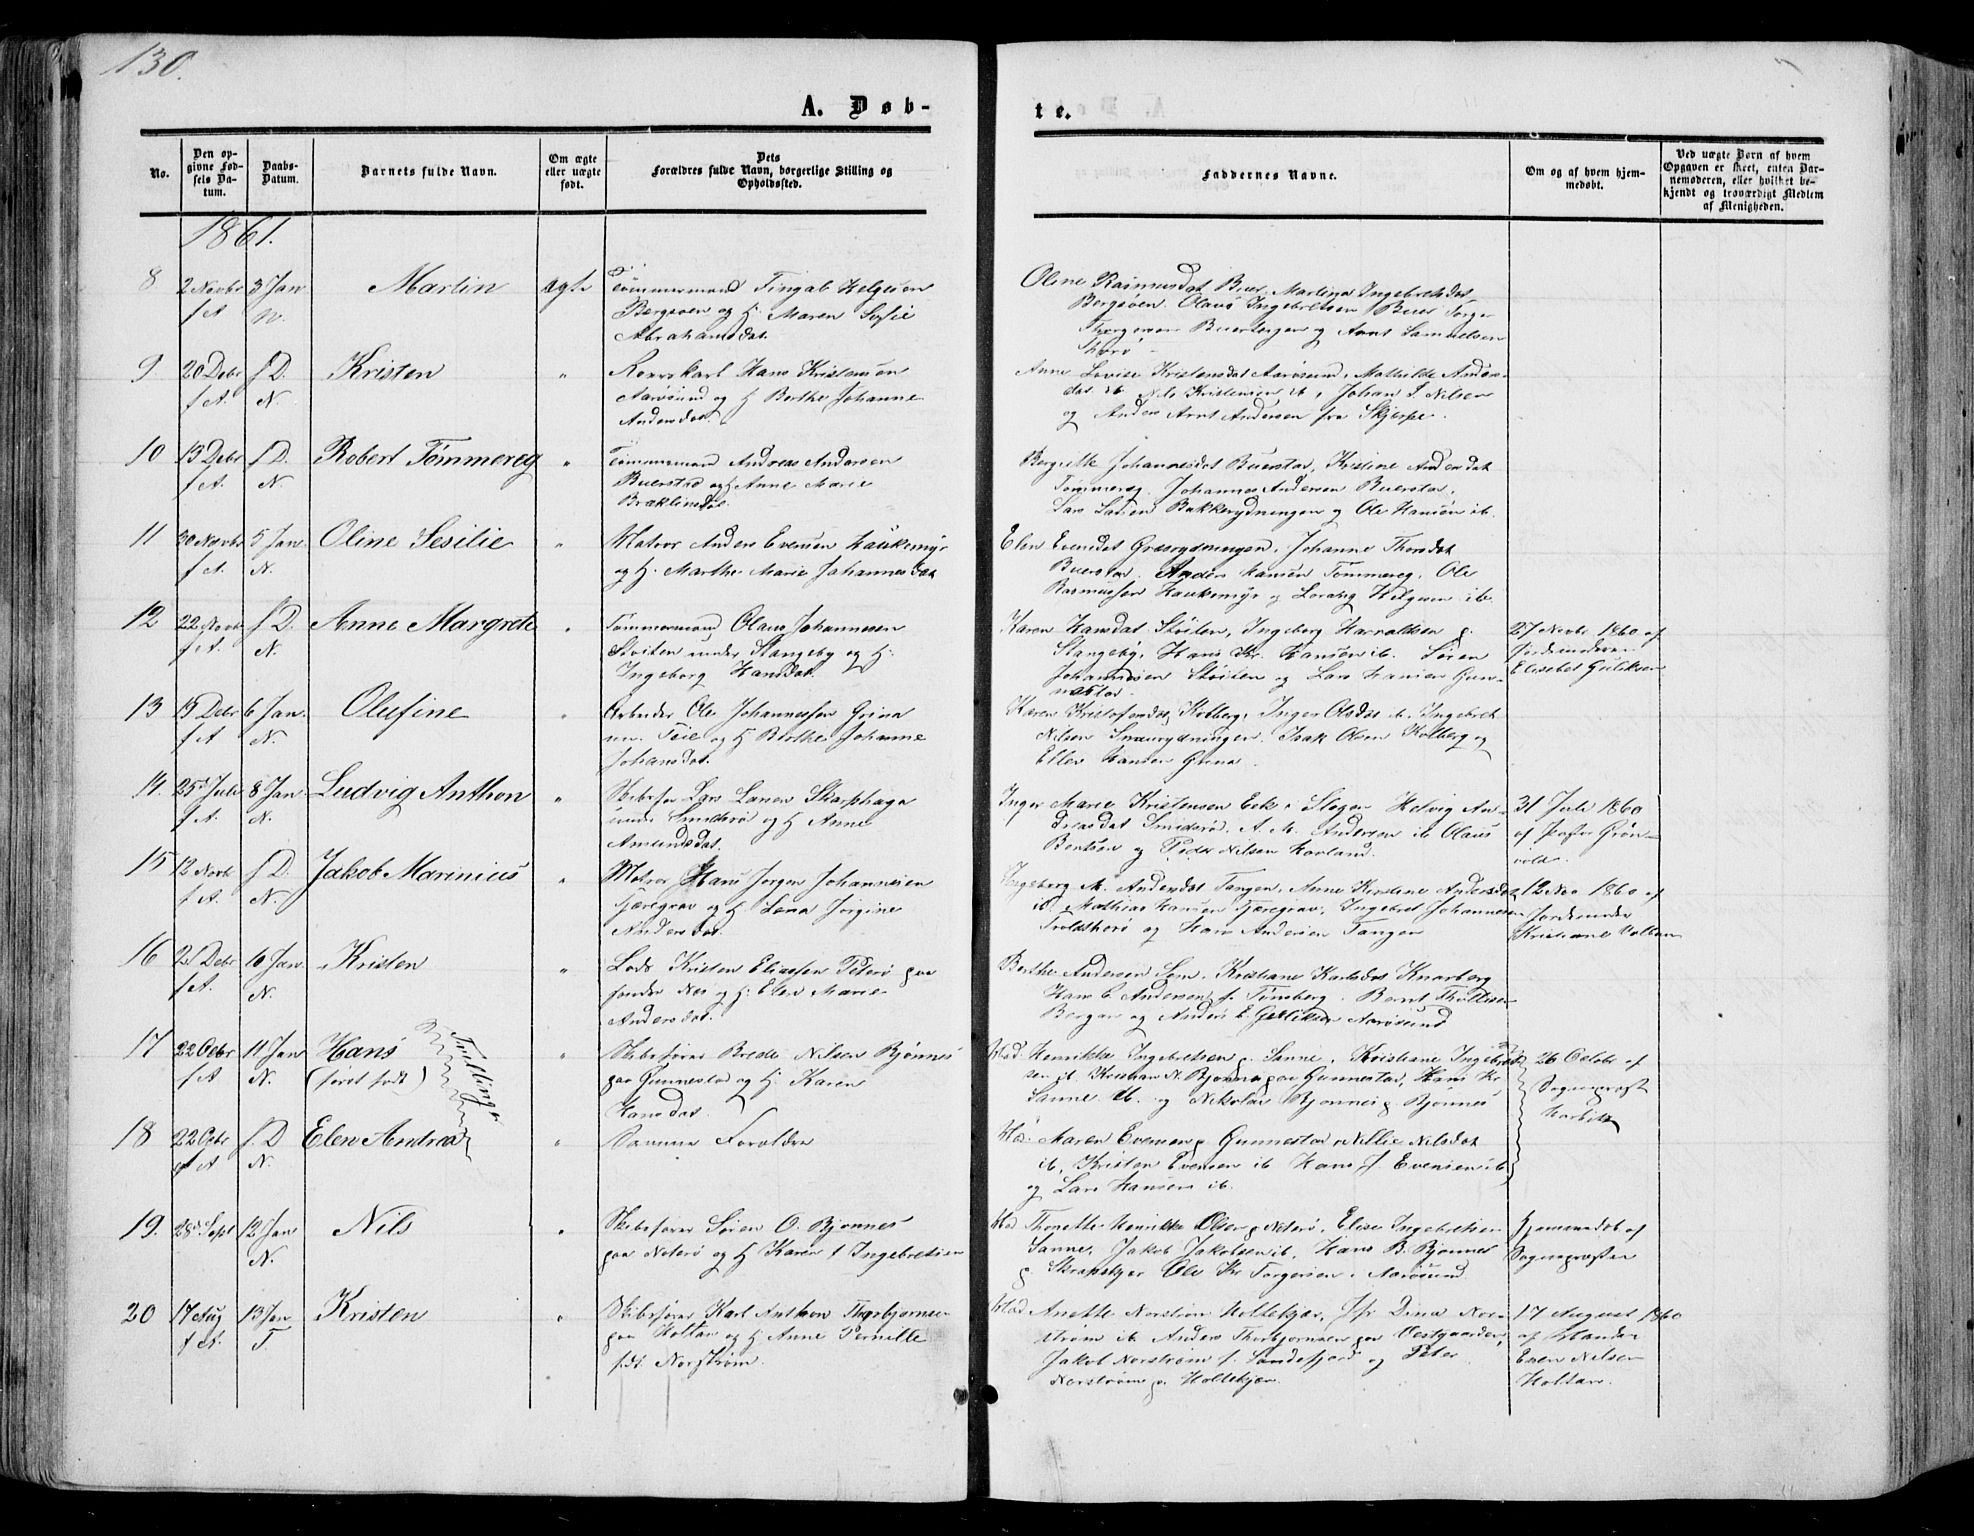 130.
A. Døb-
te.
No.
Den opgivne Fødsels Datum.
Daabs-Datum.
Barnets fulde Navn.
Om ægte eller uægte født.
Dets Forældres fulde Navn, borgerlige Stilling og Opholdssted.
Faddernes Navne.
Om og af hvem hjemmedøbt.
Ved uægte Børn af hvem Opgaven er skeet, enten Barnemoderen, eller hvilket bekjendt og troværdigt Medlem af Menigheden.
1861.
8 2 Novbr f A 3 Jan N. Martin ægte
Tømmermand Fingal Helgesen
Bergsven og H. Maren Sofie
Abrahamsdat.
Martina Ingebretsdat
Bergsven. Olaus Ingebretsen
og Arnt Samuelsen
9 20 Debr f A. f D. N. Kristen "
Hans Kristensen
Aarøsund og H Berthe Johanne
Andersdat.
Anne Lovise Kristensdat Aarøsund, Mathilde Anders-
dat ib Nils Kristensen ib, Johan L Nilsen
og Anders Arnt Andersen fra Skjerpe.
10 13 Debr f A. f D. N. Robert Tømmereg "
Tømmermand Andreas Andersen
Buerstad og H Anne Marie
Johannesdat Buerstad, Kristine Andersdat
Tømmereg, Johannes Andersen Buerstad,
Lars Larsen Bakkerydningen og Ole Hansen ib.
11 30 Novbr f A. 5 Jan N. Oline Sesilie "
Matros Anders Evensen Haukemyr
og H. Marthe Marie Johannesdat
Elen Evensdat Græsrydningen, Johanne Thorsdat
Buerstad. Anders Hansen Tømmereg, Ole
Rasmussen Haukemyr og Helgesen ib.
12 22 Novb f A. f D. N. Anne Margrete "
Tømmermand Olaus Johannesen
Støiten under Stangeby og H.
Ingeborg Hansdat.
Karen Hansdat Støiten, Ingeborg Harraldsen p.
Stangeby, Hans Kr. Hansen ib. Søren
Johannesen Støiten og Lars Hansen Gun-
nestad.
27 Novbr 1860 af
Jordemoderen
Elisabet Guliksen
13 15 Debr f A 6 Jan. N. Olufine "
Arbeider Ole Johannessen Grina
un. Teie og H Berthe Johanne
Johansdat.
Karen Kristofersdat, Kolberg, Inger Olsdat ib. Ingebret
Nilsen Snaurydningen. Isak Olsen Kolberg og
Ellev Hansen Grina.
14. 25 Juli f A. 8 Jan N. Ludvig Anthon "
Skibsfør Lars Larsen Skarphaga
under Smidsrød og H Anne
Amundsdat.
Inger Marie Kristensen Eek, Helvig An-
dreasdat Smidsrød, A. M. Andersen ib Olaus
Bentsen og Peder Nilsen Hovland.
31 Juli 1860
af Pastor Grøn-
vold.
15 12 Novb f A. f D. N. Jakob Marinius "
Matros Hans Jørgen Johannesen
Fjæregrav og H. Lena Jørgine
Andersdat.
Ingeborg M. Andersdat Tangen, Anne Kirstine Andersdat
ib. Mathias Hansen Fjæregrav, Ingebret Johannesen
og Hans Andersen Tangen
12 Nov 1860 af
Jordemoder
Kristiane
16 2 Debr f A. 10 Jan N. Kristen "
Lods Kristen Eliassen Peterø paa
søndre Næs og H. Elen Marie
Andersdat.
Berthe Andersen Sem, Kristiane Karlsdat Knarberg
Hans C Andersen, f. Tønsberg. Bernt
Bergan og Anders E. Gulliksen Aarøsund
17 22 Ocbr f A 11 Jan N. Hans (først født) "
Tvillinger
Skibsfører Brede Nilsen Bjønnes
paa Gunnestad og H. Karen
Hansdat.
Mad. Henrikke Ingebretsen p. Sanne, Kristiane Ingebret-
sen ib. Kristian N. Bjønnes paa Gunnestad, Hans Kr.
Sanne ib. og Nikolai Bjønnes p. Bjønnes
26 Octobr af
Sognepræst
18 22 Ocbr f A f. D N. Elen Andrea "
Samme Forældre
Mad. Maren Evensen p Gunnestad, Nillie Nilsdat
ib, Kristen Evensen ib Hans J. Evensen ib
og Lars Hansen ib.
19. 28 Sept 12 Jan N. Nils "
Skibsfører Søren O. Bjønnes
paa Nøterø og H Karen f Ingebretsen
Mad Thonette Henrikke Olsen p Nøterø, Elise Ingebretsen
Sanne, Jakob Jakobsen ib, Hans B. Bjønnes
p Skrapekjær Ole Kr Torgersen, Aarøsund.
Hjemmedøbt af
Sognepræsten
20 17 Aug f A. 13 Jan T. Kristen "
Skibsfører Karl Anthon Thorbjørnsen
paa Holtan og H Anne Pernille
født Norstrøm.
Mad Anette Norstrøm Holtekjær, Jfr Dina Nor-
strøm ib Anders Thorbjørnsen paa Vestgaarden,
Jakob Norstrøm f. Sandefjord og Peter
Norstrøm p. Holtekjær.
17 August 1860
af
Even Nilsen
Holtan.